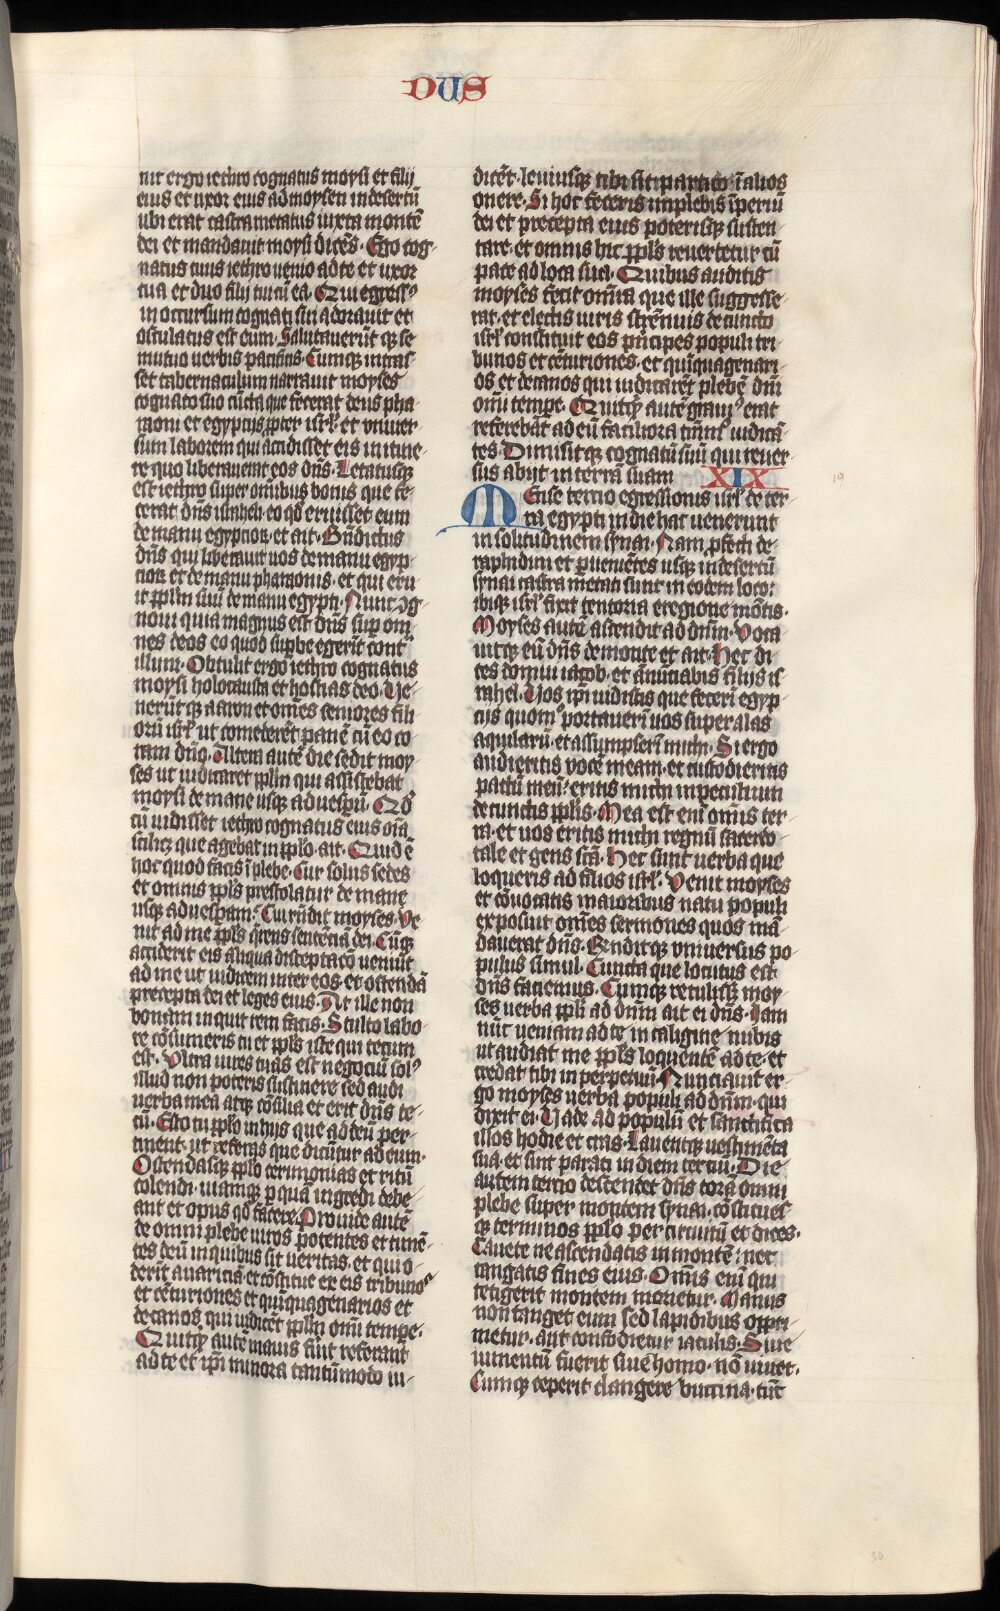 DUS
nit ergo iethro cognatus moysi et filij
eius et uxor eius ad moysen in desertū
ubi erat castra metatus iuxta montē
dei et mandauit moysi dicēs. Ego cog-
natus tuus iethro uenio ad te et uxor
tua et duo filij tui cū ea. Qui egressꝰ
in occursum cognati sui adorauit et
osculatus est eum. Salutauerūt qꝫ se
mutuo uerbis pacificis. Cumqꝫ intras-
set tabernaculum narrauit moyses
cognato suo cūcta que fecerat deus pha-
raoni et egyptijs ꝓpter isrl̄. et vniuer-
sum laborem qui accidisset eis in itine-
re quo liberauerat eos dn̄s. Letatusqꝫ
est iethro super om̄ibus bonis que fe-
cerat dn̄s israheli. eo qd̄ eruisset eum
de manu egyptioꝝ. et ait. Bn̄dictus
dn̄s qui liberauit uos de manu egyp-
tioꝝ et de manu pharaonis. et qui eru-
it ppl̄m suū de manu egypti. Nunc ꝯg-
noui quia magnus est dn̄s sup om-
nes deos eo quod supbe egerit cont̄
illum. Obtulit ergo iethro cognatus
moysi holocausta et hostias deo. Ue-
nerūt qꝫ aaron et om̄es seniores fili-
orū isrl̄ ut comederēt panē cū eo co-
ram dn̄o. Altera autē die sedit moy-
ses ut iudicaret ppl̄m qui assistebat
moysi de mane usqꝫ ad uespū. Qd̄
cū uidisset iethro cognatus eius om̄ia
scilicꝫ que agebat in ppl̄o. ait. Quid ē
hoc quod facis ī plebe. Cur solus sedes
et omnis ppl̄s prestolatur de mane
usqꝫ ad uespam. Cui rn̄dit moyses. Ve-
nit ad me ppl̄s q̄rens sentēciā dei. Cūqꝫ
acciderit eis aliqua disceptacō ueniūt
ad me ut iudicem inter eos. et ostendā
precepta dei et leges eius. At ille non
bonam inquit rem facis. Stulto labo-
re cōsumeris tu et ppl̄s iste qui tecum
est. Vltra uires tuas est negociū solꝰ
illud non poteris sustinere sed audi
uerba mea atqꝫ cōsilia et erit dn̄s te-
cū. Esto tu ppl̄o in hijs que ad deū per-
tinent. ut referas que dicūtur ad eum.
Ostendasqꝫ ppl̄o cerimonias et ritū
colendi. uiamqꝫ p quā ingredi debe-
ant et opus qd̄ facere. Prouide autē
de omni plebe uiros potentes et timē-
tes deū in quibus sit veritas. et qui o-
derit auariciā et cōstitue ex eis tribunos
et cēturiones et quīquagenarios et
decanos qui iudicēt ppl̄m om̄i tempe.
Quitqꝫ autē maius fūit referant
ad te et ip̄i minora tantūmodo iu-
dicēt. leuiusqꝫ tibi sit partito ī alios
onere. Si hoc feceris implebis īperiū
dei et precepta eius poterisqꝫ susten-
tare. et omnis hic ppl̄s reuertetur cū
pace ad loca sua. Quibus auditis
moyses fecit om̄ia que ille suggesse-
rat. et electis uiris strēnuis de cuncto
isrl̄ constituit eos prīcipes populi tri-
bunos et cēturiones. et quīquagenari-
os et decanos qui iudicarēt plebē dn̄i
om̄i tempe. Quitqꝫ autē grauiꝰ erat
referebāt ad eū faciliora tm̄mō iudicā-
tes. Dimisitqꝫ cognatū suū qui reuer-
sus abijt in terrā suam XIX
Mense tercio egressionis isrl̄ de ter-
ra egypti in die hac uenerunt
in solitudinem synai. Nam pfecti de
raphidim et puenientes usqꝫ in desertū
synai castra metati sunt in eodem loco:
ibiqꝫ isrl̄ fixit tentoria e regione mōtis.
Moyses autē ascendit ad dn̄m. Voca-
uitqꝫ eū dn̄s de monte et ait. Hec di-
ces domui iacob. et ānunciabis filijs is-
rahel. Uos ip̄i uidistis que fecerī egyp-
cijs quomō portauerī uos super alas
aquilarū. et assumpserī michi. Si ergo
audieritis vocē meam. et custodieritis
pactū meū: eritis michi in peculium
de cunctis ppl̄is. Mea est enī om̄is ter-
ra. et uos eritis michi regnū sacerdo-
tale et gens scā. Hec sunt uerba que
loqueris ad filios isrl̄. Venit moyses
et cōuocatis maioribus natu populi
exposuit om̄es sermones quos mā-
dauerat dn̄s. Rn̄ditqꝫ vniuersus po-
pulus simul. Cuncta que locutus est
dn̄s faciemus. Cumqꝫ retulissꝫ moy-
ses uerba ppl̄i ad dn̄m ait ei dn̄s. Iam
nūc ueniam ad te in caligine nubis
ut audiat me ppl̄s loquentē ad te. et
credat tibi in perpetuū. Nunciauit er-
go moyses uerba populi ad dn̄m. qui
dixit ei. Uade ad populū et sanctifica
illos hodie et cras. Lauentqꝫ uestimēta
sua. et sint parati in diem terciū. Die
autem tercio descendet dn̄s corā omni
plebe super montem synai. cōstitues-
qꝫ terminos ppl̄o per circuitū et dices.
Cauete ne ascendatis in montē: nec
tangatis fines eius. Om̄is enī qui
tetigerit montem morietur. Manus
non tanget eum sed lapidibus oppri-
metur. aut confodietur iaculis. Siue
iumentū fuerit siue homo. nō uiuet.
Cumqꝫ ceperit clangere buccina. tūc
19
30